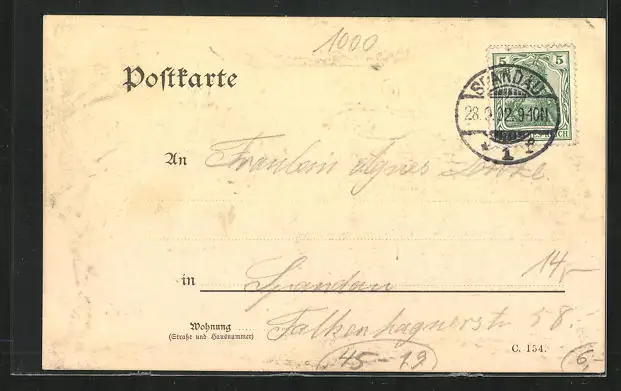 1000
Postkarte
5 5
SPANDAU
28.9.02.9-10N
* 1 *
An Fräulein Agnes
14,-
in Spandau
Wohnung Falkenhagnerstr 58.
(Straße und Hausnummer)
45-19
C. 154.
6,-